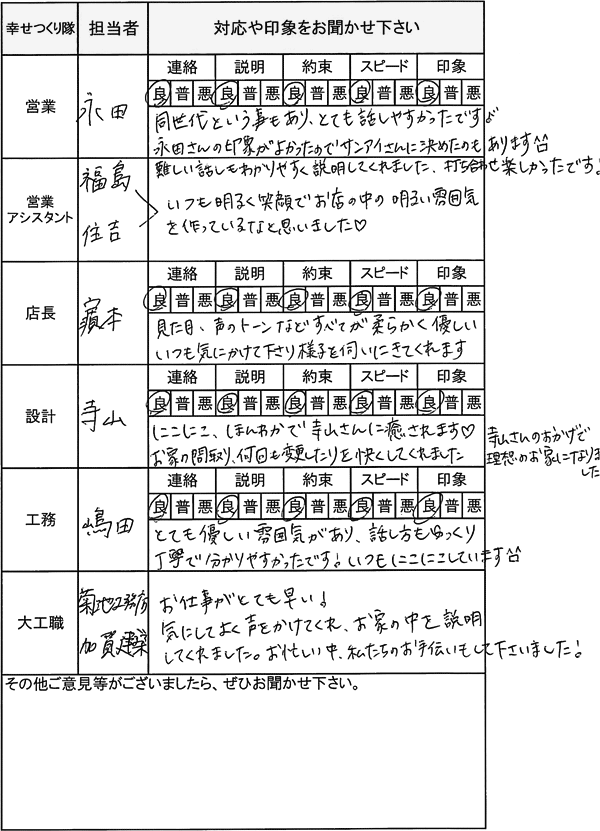 幸せつくり隊 担当者 対応や印象をお聞かせ下さい
営業 永田
連絡 説明 約束 スピード 印象
良 普 悪 良 普 悪 良 普 悪 良 普 悪 良 普 悪
同世代という事もあり、とても話しやすかったです♪
永田さんの印象がよかったのでサンアイさんに決めたのもあります^^
難しい話しもわかりやすく説明してくれました、打ち合わせ楽しかったです♪
営業
アシスタント
福島
住吉
いつも明るく笑顔でお店の中の明るい雰囲気
を作っているなと思いました♡
店長 濵本
連絡 説明 約束 スピード 印象
良 普 悪 良 普 悪 良 普 悪 良 普 悪 良 普 悪
見た目、声のトーンなどすべてが柔らかく優しい
いつも気にかけて下さり様子を伺いにきてくれます
設計 寺山
連絡 説明 約束 スピード 印象
良 普 悪 良 普 悪 良 普 悪 良 普 悪 良 普 悪
にこにこ、ほんわかで寺山さんに癒されます♡
お家の間取り、何回も変更したりを快くしてくれました
寺山さんのおかげで
理想のお家になりま
した
工務 嶋田
連絡 説明 約束 スピード 印象
良 普 悪 良 普 悪 良 普 悪 良 普 悪 良 普 悪
とても優しい雰囲気があり、話し方もゆっくり
丁寧で分かりやすかったです！いつもにこにこしています^^
大工職
菊地工務店
加賀建築
お仕事がとても早い♪
気にしてよく声をかけてくれ、お家の中を説明
してくれました。お忙しい中、私たちのお手伝いもして下さいました！
その他ご意見等がございましたら、ぜひお聞かせ下さい。